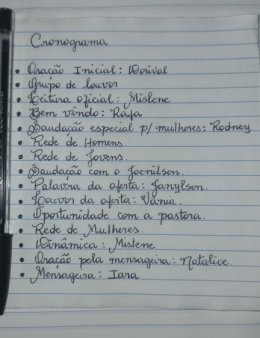 Cronograma
• Oração Inicial: Dorival
• Grupo de louvor
• Leitura oficial: Mislene
• Bem vindo: Rafa
• Saudação especial p/ mulheres: Rodney
• Rede de Homens
• Rede de Jovens
• Saudação com o Joenilson.
• Palavra da oferta: Janylson.
• Louvor da oferta: Vânia.
• Oportunidade com a pastora.
• Rede de Mulheres.
• Dinâmica: Mislene
• Oração pela mensageira: Natalice.
• Mensageira: Iara